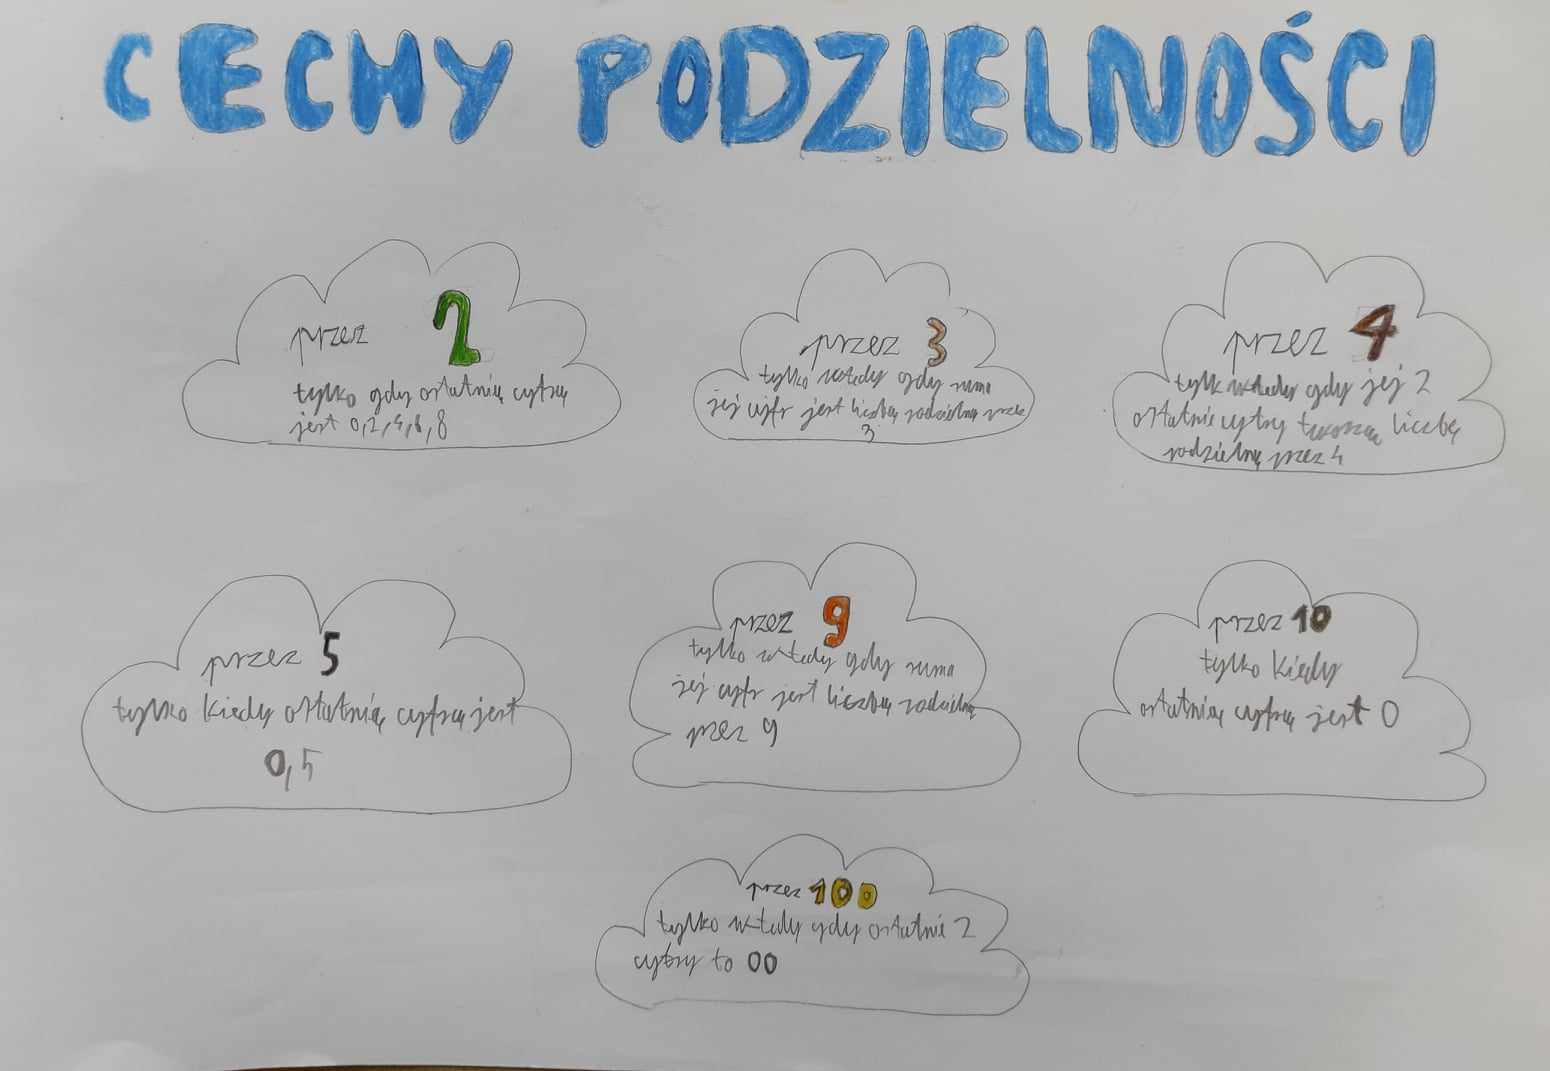 CECHY PODZIELNOŚCI
przez 2
tylko gdy ostatnią cyfrą
jest 0,2,4,6,8
przez 3
tylko wtedy gdy suma
jej cyfr jest liczbą podzielną przez
3
przez 4
tylk wtedy gdy jej 2
ostatnie cyfry tworzą liczbę
podzielną przez 4
przez 5
tylko kiedy ostatnią cyfrą jest
0,5
przez 9
tylko wtedy gdy suma
jej cyfr jest liczbą podzielną
przez 9
przez 10
tylko kiedy
ostatnią cyfrą jest 0
przez 100
tylko wtedy gdy ostatnie 2
cyfry to 00